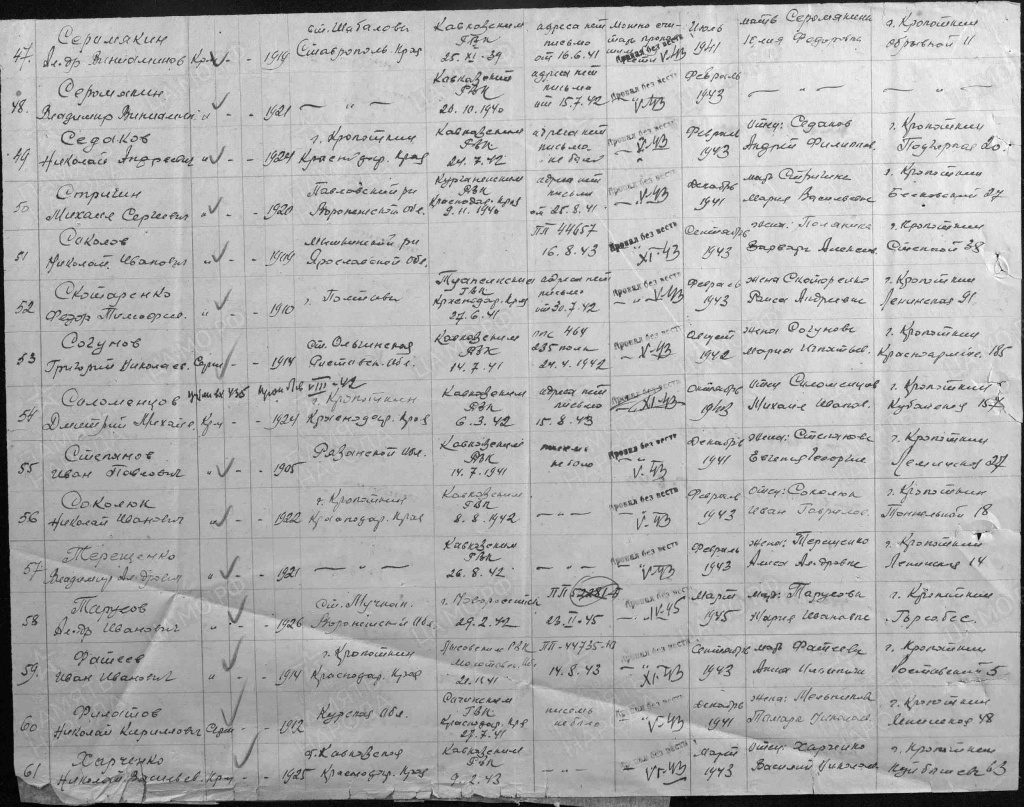 47. Серомякин ст. Шабалова Кавказским адреса нет Можно счи- Июль мать Серомякина г. Кропоткин
Ал-др Виниаминов. Кр-ц - - 1919 Ставрополь. Края ГВК письмо 1941 Федоровна Обрывной 11
25.XI.39 от 16.6.41 Пропал без вести V-43
48. Серомякин Кавказский адреса нет Пропал без вести Февраль
Владимир " - - 1921 — " — РВК письмо V-43 1943 — " — — " —
20.10.1940 от 15.7.42
49 Седаков г. Кропоткин Кавказским адреса нет Пропал без вести Февраль Отец: Седаков г. Кропоткин
Николай Андреевич " - - 1924 Краснодар. Края РВК письма V-43 1943 Андрей Филиппов. Подгорная 20
24.7.42 не было
50 Стригин Павловский р-н Курганенским адреса нет Пропал без вести Декабрь мать Стригина г. Кропоткин
Михаил Сергеевич " - - 1920 Воронежской обл. РВК письмо V-43 1941 Мария Васильевна 27
Краснодар. Края от 25.8.41
9.11.1940
51 Соколов Мышкинский р-н ПП 44657 Пропал без вести Сентябрь жена: г. Кропоткин
Николай Иванович " - - 1909 Ярославской обл. 16.8.43 XI-43 1943 Варвара Алексеев. Степной 38
52 Скотаренко г. Полтава Туапсинским адреса нет Пропал без вести Февраль жена Скотаренко г. Кропоткин
Федор Тимофеев. " - - 1910 ГВК письмо V-43 1943 Раиса Андреевна Ленинская 91
Краснодар. Края от 30.7.42
27.6.41
53 Согунов ст. Ольгинская Кавказским ппс 464 Пропал без вести Август жена: Согунова г. Кропоткин
Григорий Николаев. Серж - - 1914 Ростовск. обл. РВК 235 полк V-43 1942 Мария Игнатьев. Красноармейс. 185
14.7.41 24.4.1942
54 Соломенцов VIII-42 Кавказским адреса нет Пропал без вести Октябрь Отец Соломенцов г. Кропоткин
Дмитрий Михайл. Кр-ц - 1924 г. Кропоткин РВК письмо XI-43 Михаил Иванов. Кубанская 157
Краснодар. Края 6.3.42 15.8.43
55 Степанов Рязанской обл. Кавказский письмь Пропал без вести Декабрь жена: Степанова г. Кропоткин
Иван Павлович " - - 1905 РВК не было V-43 1941 Евгения Георгие. Ленинская 27
14.7.1941
56 Соколюк г. Кропоткин Кавказским Пропал без вести Февраль Отец: Соколюк г. Кропоткин
Николай Иванович " - - 1922 Краснодар. Края РВК — " — V-43 1943 Иван Гаврилов. 18
8.8.1942
57 Терещенко Кавказским Пропал без вести Февраль жена: Терещенко г. Кропоткин
Владимир " - - 1921 — " — РВК — " — V-43 1943 Ленинская 14
26.8.42
58 Тарусов г. Новороссийск ПП Пропал без вести Март мать Тарусова г. Кропоткин
Ал-др Иванович " - - 1926 Воронежской обл. 29.2.42 23.II-45 IV-45 1945 Мария Ивановна Горсобес.
59. Фатеев г. Кропоткин Лысовским РВК ПП-44735-Ю Пропал без вести Сентябрь мать Фатеева г. Кропоткин
Иван Иванович " - - 1914 Краснодар. Края Молотовск. обл. 14.8.43 XI-43 1943 Анна Ростовский 5
60 Филатов Курская обл. Сочинским письмь Пропал без вести декабрь жена: г. Кропоткин
Николай Кириллович Серж - - 1912 ГВК не было V-43 1941 Тамара Николаев. Ленинская 48
Краснодар. Края
27.7.41
61 Харченко ст. Кавказская Кавказским Пропал без вести Март Отец: Харченко г. Кропоткин
Николай Васильев. Кр-ц - 1925 Краснодар. Края РВК — " — VI-43 1943 Василий Николаев. Куйбышева 63
9.2.43